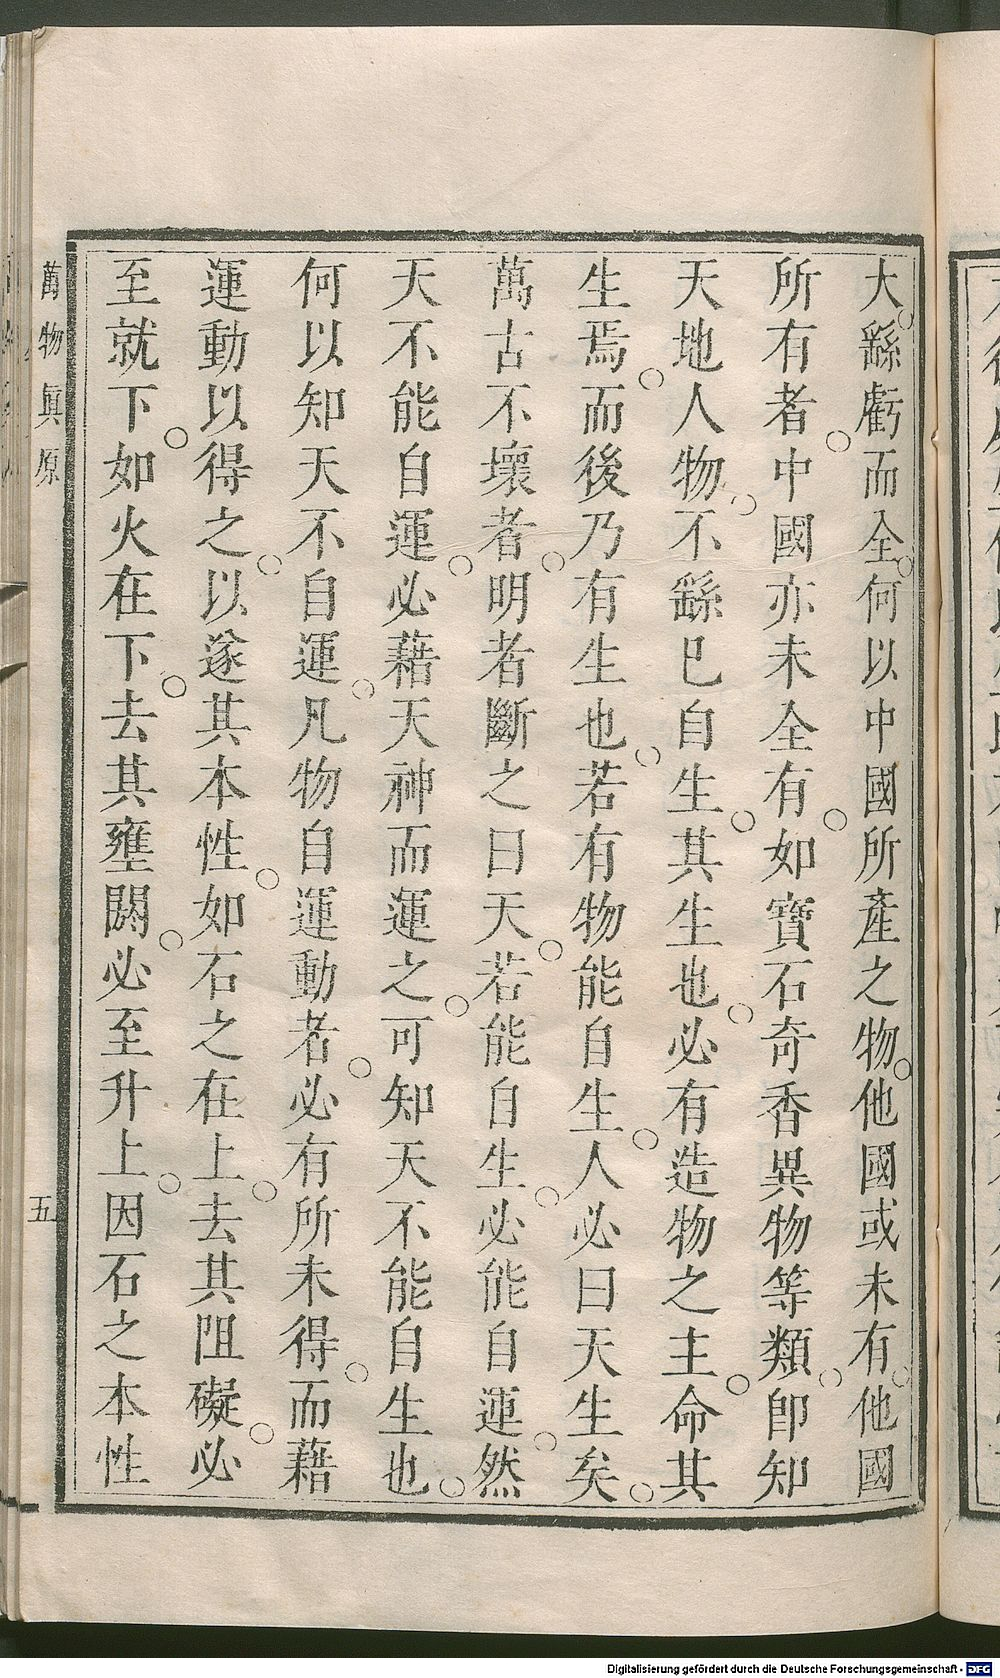 大。繇虧而全。何以中國所產之物。他國或未有。他國
所有者。中國亦未全有。如寶石奇香異物等類。卽知
天地人物。不繇已自生。其生也。必有造物之主。命其
生焉。而後乃有生也。若有物能自生。人必曰天生矣。
萬古不壞者。明者斷之曰天。若能自生。必能自運。然
天不能自運。必藉天神而運之。可知天不能自生也。
何以知天不自運。凡物自運動者。必有所未得。而藉
運動以得之。以遂其本性。如石之在上。去其阻礙。必
至就下。如火在下。去其壅閼。必至升上。因石之本性
萬物眞原
五
Digitalisierung gefördert durch die Deutsche Forschungsgemeinschaft - DFG